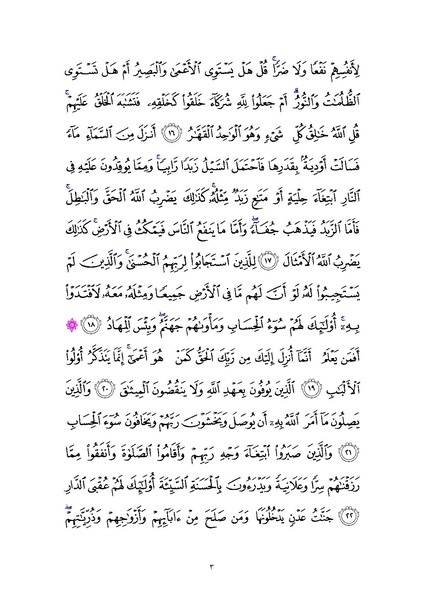 لِأَنفُسِهِمْ نَفْعًا وَلَا ضَرًّا ۚ قُلْ هَلْ يَسْتَوِى ٱلْأَعْمَىٰ وَٱلْبَصِيرُ أَمْ هَلْ تَسْتَوِى
ٱلظُّلُمَٰتُ وَٱلنُّورُ ۗ أَمْ جَعَلُوا۟ لِلَّهِ شُرَكَآءَ خَلَقُوا۟ كَخَلْقِهِۦ فَتَشَٰبَهَ ٱلْخَلْقُ عَلَيْهِمْ ۚ
قُلِ ٱللَّهُ خَٰلِقُ كُلِّ شَىْءٍ وَهُوَ ٱلْوَٰحِدُ ٱلْقَهَّٰرُ ۝١٦ أَنزَلَ مِنَ ٱلسَّمَآءِ مَآءً
فَسَالَتْ أَوْدِيَةٌۢ بِقَدَرِهَا فَٱحْتَمَلَ ٱلسَّيْلُ زَبَدًا رَّابِيًا ۚ وَمِمَّا يُوقِدُونَ عَلَيْهِ فِى
ٱلنَّارِ ٱبْتِغَآءَ حِلْيَةٍ أَوْ مَتَٰعٍ زَبَدٌ مِّثْلُهُۥ ۚ كَذَٰلِكَ يَضْرِبُ ٱللَّهُ ٱلْحَقَّ وَٱلْبَٰطِلَ ۚ
فَأَمَّا ٱلزَّبَدُ فَيَذْهَبُ جُفَآءً ۖ وَأَمَّا مَا يَنفَعُ ٱلنَّاسَ فَيَمْكُثُ فِى ٱلْأَرْضِ ۚ كَذَٰلِكَ
يَضْرِبُ ٱللَّهُ ٱلْأَمْثَالَ ۝١٧ لِلَّذِينَ ٱسْتَجَابُوا۟ لِرَبِّهِمُ ٱلْحُسْنَىٰ ۚ وَٱلَّذِينَ لَمْ
يَسْتَجِيبُوا۟ لَهُۥ لَوْ أَنَّ لَهُم مَّا فِى ٱلْأَرْضِ جَمِيعًا وَمِثْلَهُۥ مَعَهُۥ لَٱفْتَدَوْا۟
بِهِۦٓ ۚ أُو۟لَٰٓئِكَ لَهُمْ سُوٓءُ ٱلْحِسَابِ وَمَأْوَىٰهُمْ جَهَنَّمُ ۖ وَبِئْسَ ٱلْمِهَادُ ۝١٨ ۞
أَفَمَن يَعْلَمُ أَنَّمَآ أُنزِلَ إِلَيْكَ مِن رَّبِّكَ ٱلْحَقُّ كَمَنْ هُوَ أَعْمَىٰٓ ۚ إِنَّمَا يَتَذَكَّرُ أُو۟لُوا۟
ٱلْأَلْبَٰبِ ۝١٩ ٱلَّذِينَ يُوفُونَ بِعَهْدِ ٱللَّهِ وَلَا يَنقُضُونَ ٱلْمِيثَٰقَ ۝٢٠ وَٱلَّذِينَ
يَصِلُونَ مَآ أَمَرَ ٱللَّهُ بِهِۦٓ أَن يُوصَلَ وَيَخْشَوْنَ رَبَّهُمْ وَيَخَافُونَ سُوٓءَ ٱلْحِسَابِ
۝٢١ وَٱلَّذِينَ صَبَرُوا۟ ٱبْتِغَآءَ وَجْهِ رَبِّهِمْ وَأَقَامُوا۟ ٱلصَّلَوٰةَ وَأَنفَقُوا۟ مِمَّا
رَزَقْنَٰهُمْ سِرًّا وَعَلَانِيَةً وَيَدْرَءُونَ بِٱلْحَسَنَةِ ٱلسَّيِّئَةَ أُو۟لَٰٓئِكَ لَهُمْ عُقْبَى ٱلدَّارِ
۝٢٢ جَنَّٰتُ عَدْنٍ يَدْخُلُونَهَا وَمَن صَلَحَ مِنْ ءَابَآئِهِمْ وَأَزْوَٰجِهِمْ وَذُرِّيَّٰتِهِمْ ۖ
٣